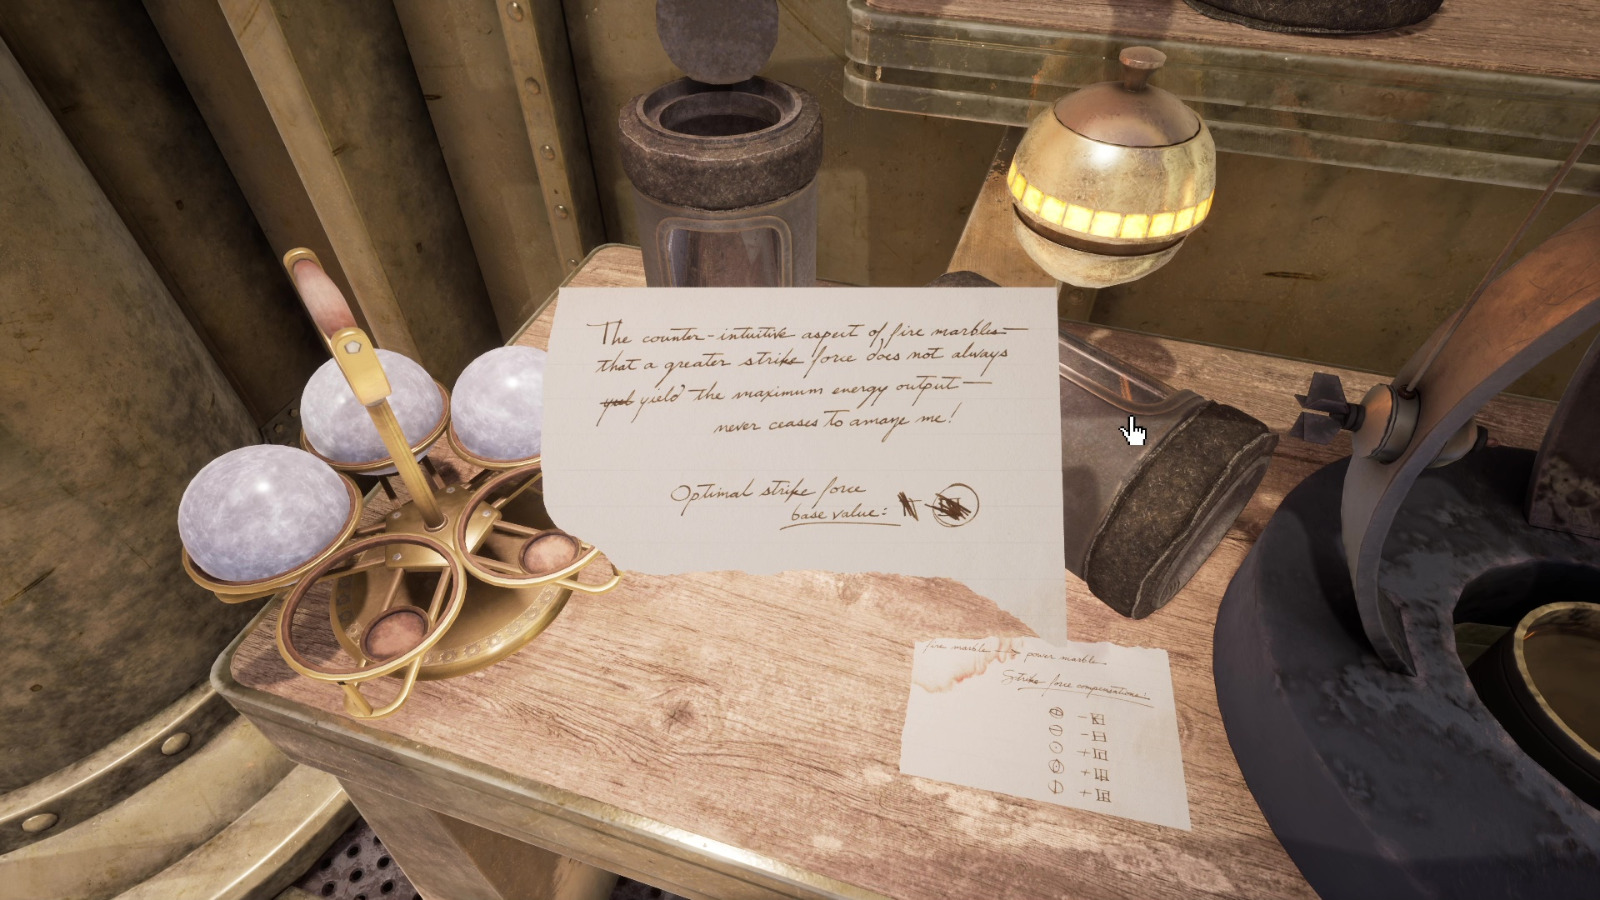 The counter-intuitive aspect of fire marbles—
that a greater strike force does not always
yiel yield the maximum energy output—
never ceases to amaze me!
Optimal strike force
base value:
fire marble → power marble
Strike force compensations: